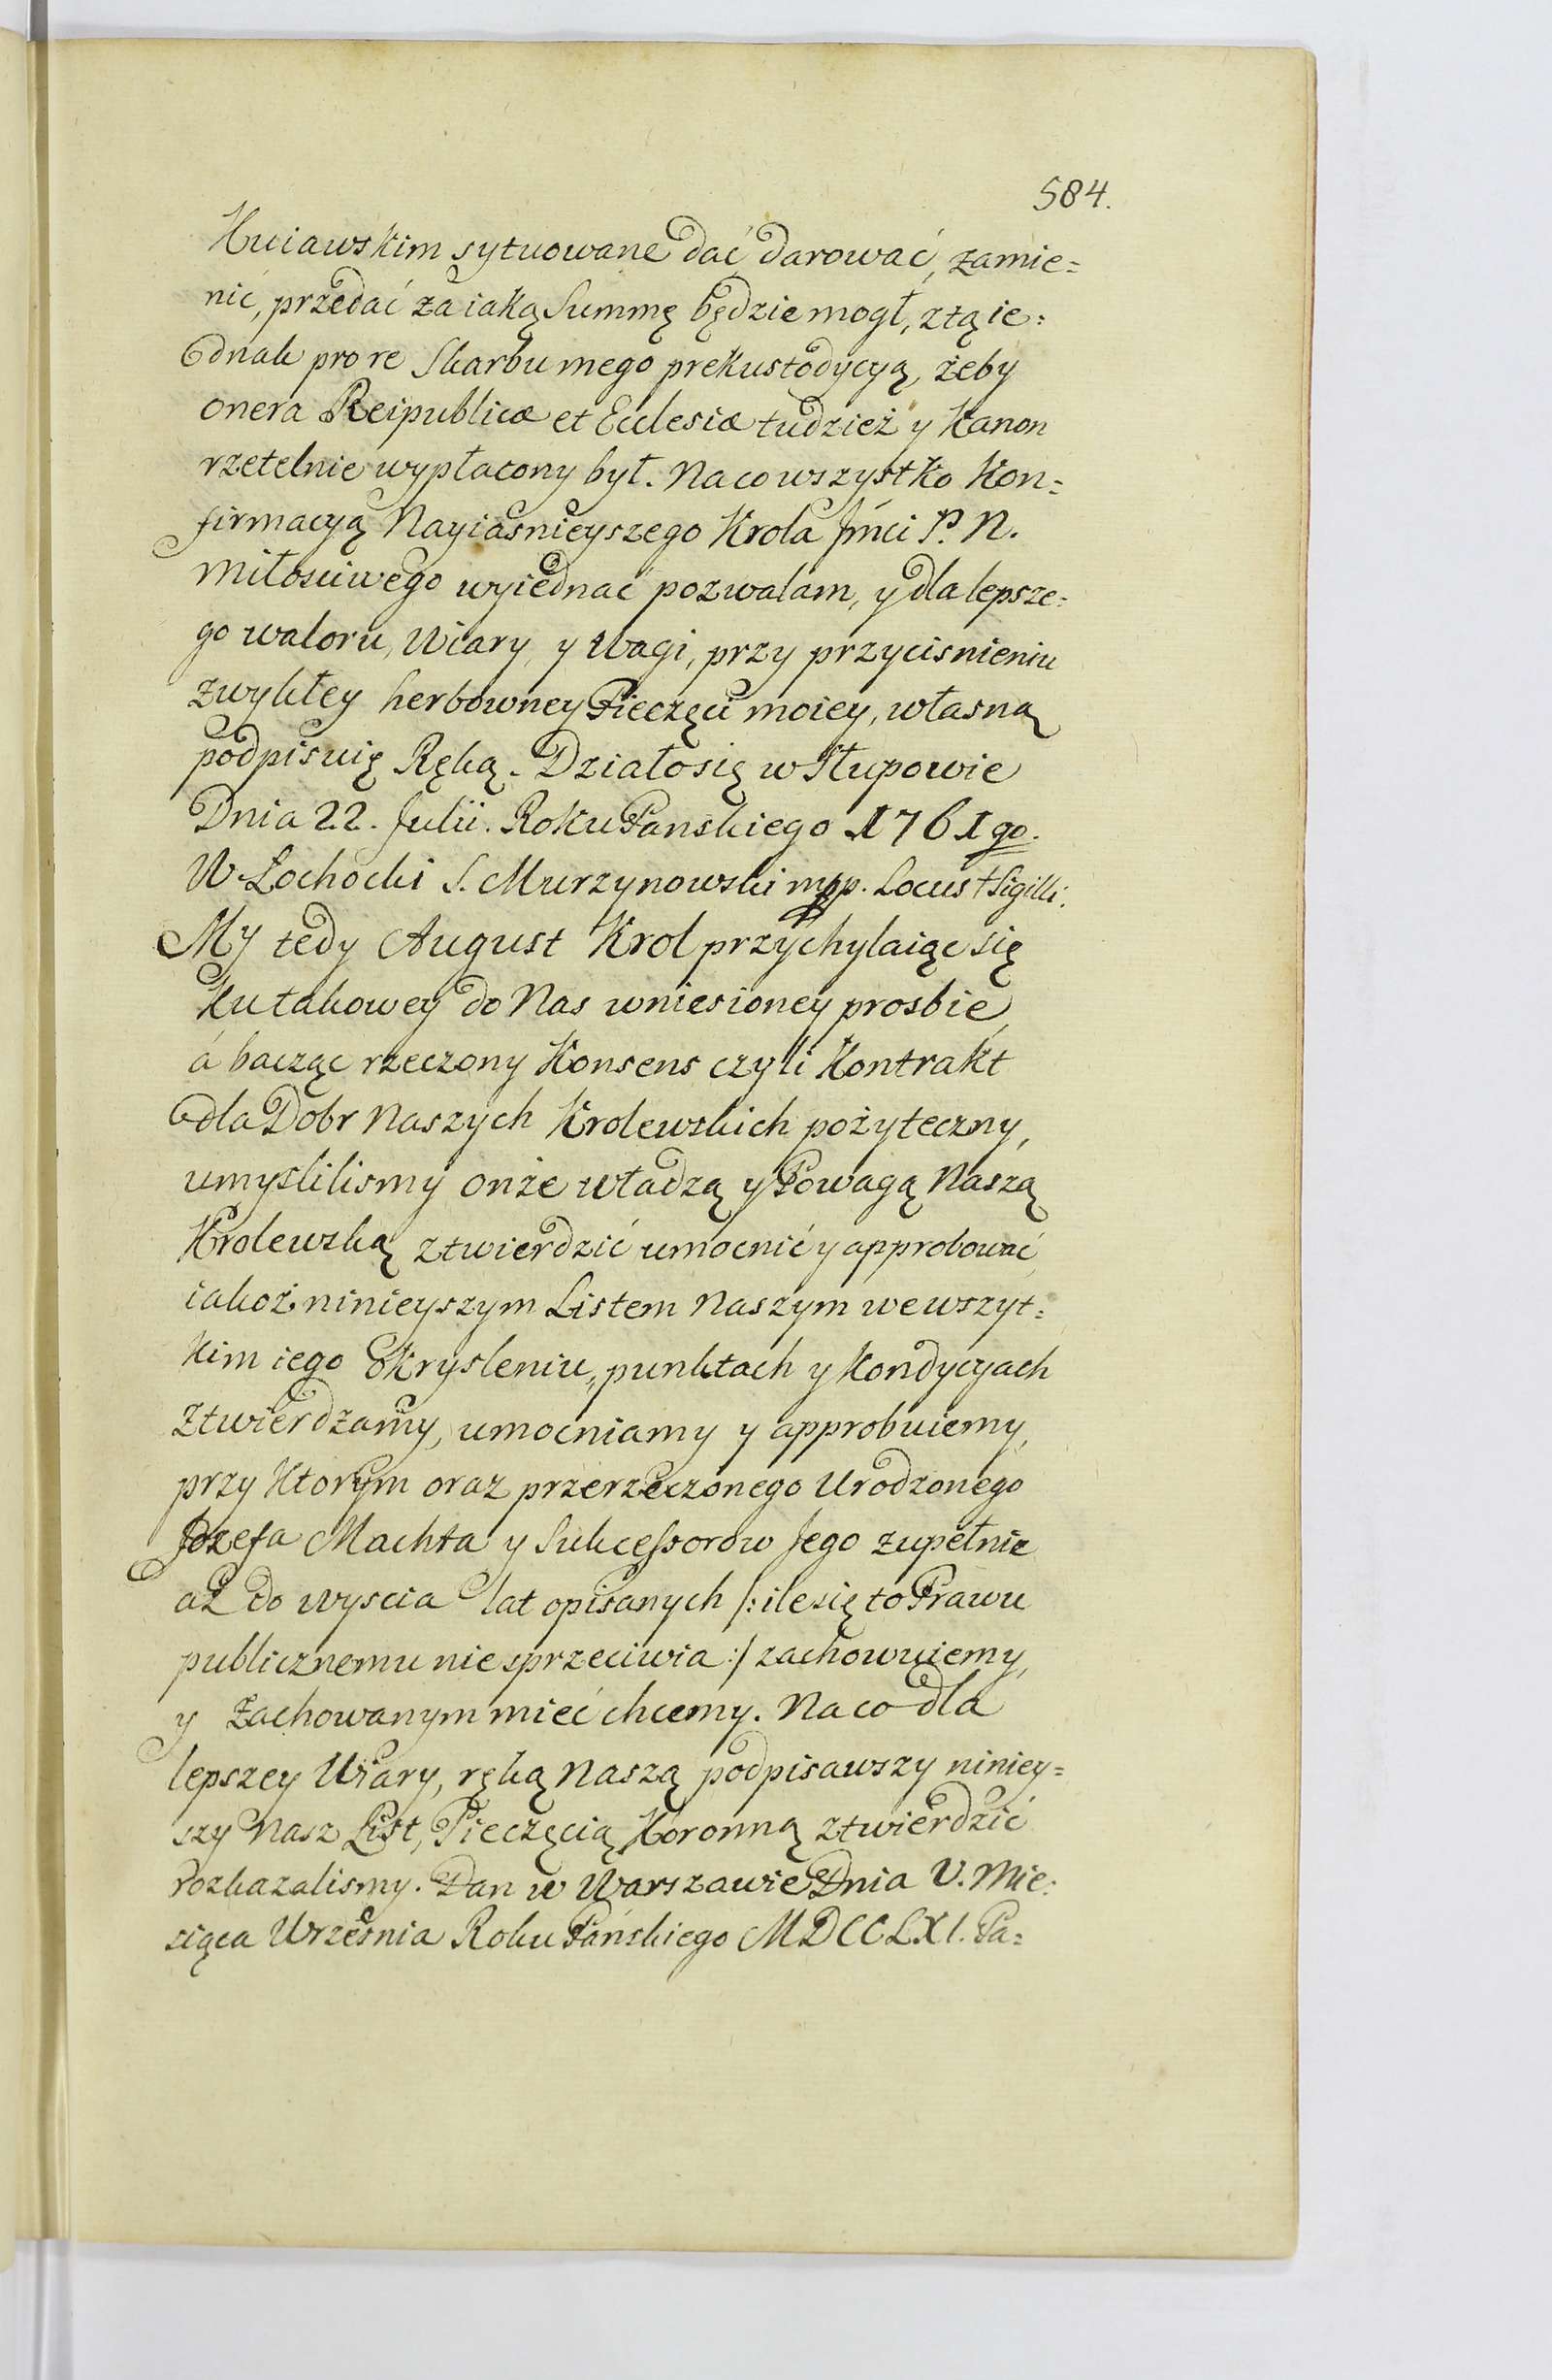 584.
Kuiawskim sytuowane dać darować, zamie=
nić, przedać za iaką Summę będzie mogł, z tą ie=
dnak pro re Skarbu mego prekustodycyą, żeby
onera Reipublicæ et Ecclesiæ tudzież y Kanon
rzetelnie wypłacony był. Na co wszystko Kon=
firmacyą Nayiasnieyszego Krola Jmći P. N.
Miłosciwego wyiednać pozwalam, y dla lepsze=
go waloru, Wiary, y Wagi, przy przycisnieniu
zwykłey herbowney Pieczęci moiey, własną
podpisuię Ręką. Działo się w Słupowie
Dnia 22. Julii. Roku Panskiego 1761go.
W. Łochocki S. Murzynowski mpp. Locus † Sigilli.
My tedy August Krol przychylaiąc się
Ku takowey do Nas wniesioney prosbie,
á bacząc rzeczony Konsens czyli Kontrakt
dla Dobr Naszych Krolewskich pożyteczny,
umyslilismy onże władzą y Powagą Naszą
Krolewską ztwierdzić umocnić y approbować,
iakoż ninieyszym Listem Naszym we wszyt=
kim iego Okrysleniu, punktach y Kondycyach
ztwierdzamy, umocniamy y approbuiemy,
przy Ktorym oraz przerzeczonego Urodzonego
Jozefa Machta y Sukcessorow Jego zupełnie
aż do wyscia lat opisanych /: ile się to Prawu
publicznemu nie sprzeciwia :/ zachowuiemy,
y zachowanym mieć chcemy. Na co dla
lepszey Wiary, ręką Naszą podpisawszy niniey=
szy Nasz List, Pieczęcią Koronną ztwierdzić
rozkazalismy. Dan w Warszawie Dnia V. Mie=
siąca Wrzesnia Roku Pańskiego MDCCLXI. Pa=